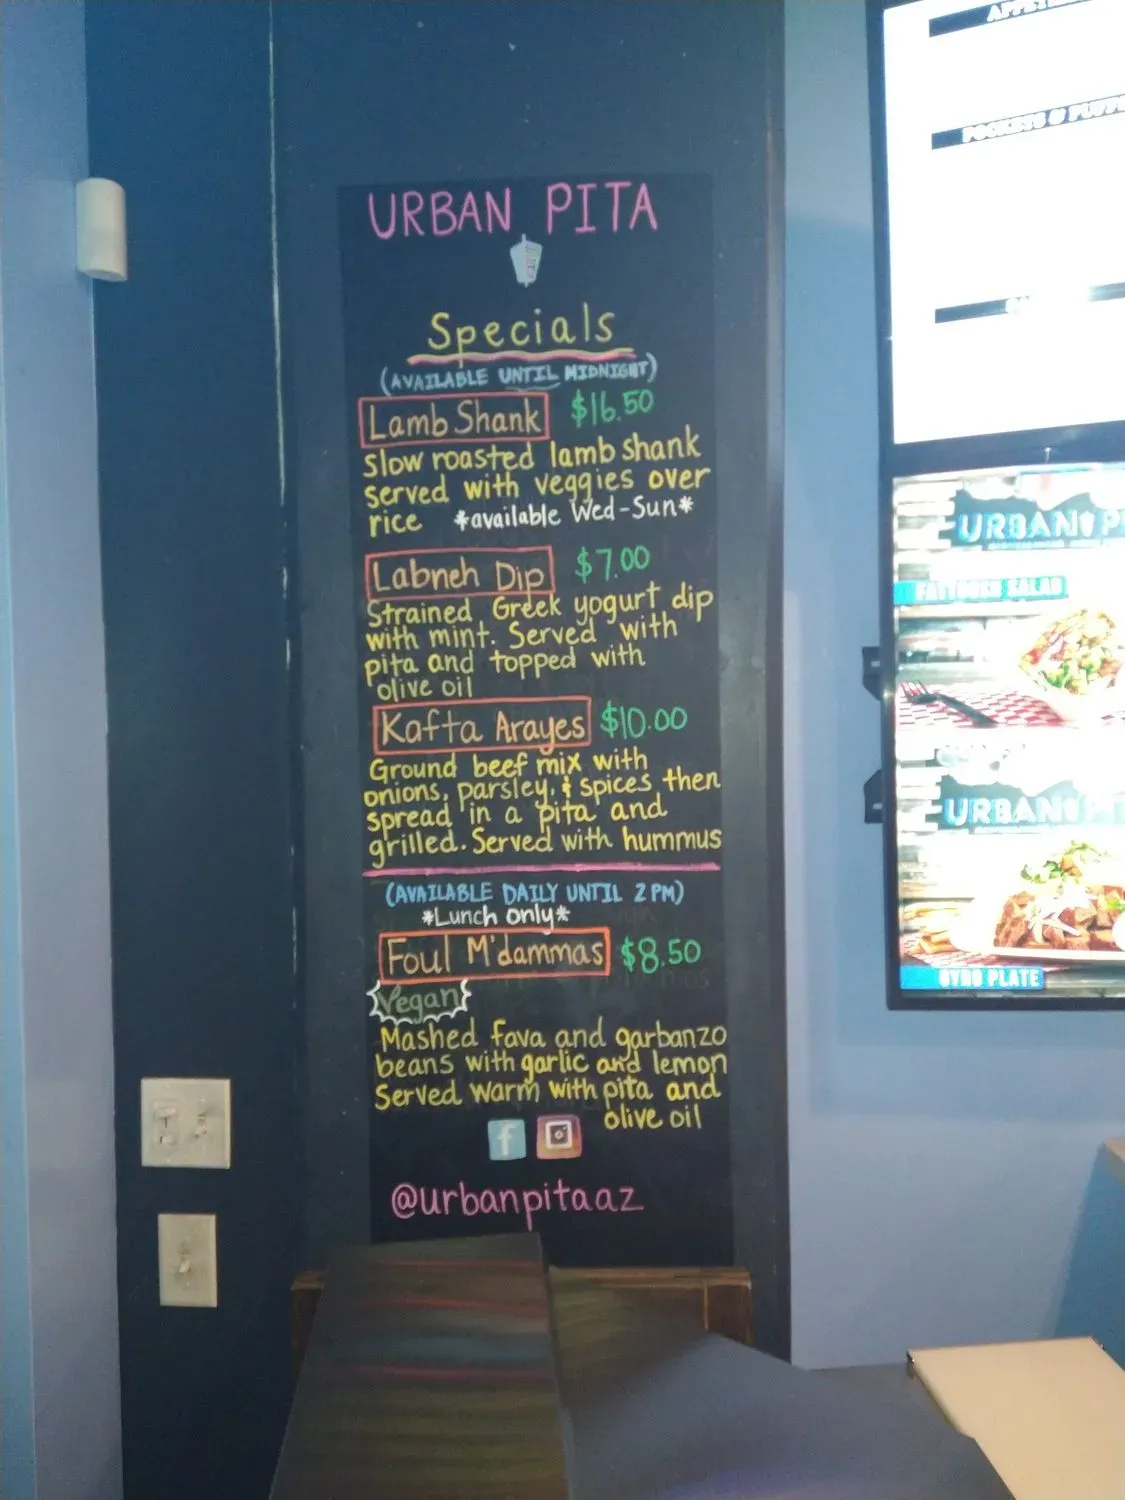 URBAN PITA
Specials
(AVAILABLE UNTIL MIDNIGHT)
Lamb Shank $16.50
Slow roasted lamb shank
served with veggies over
rice *available Wed-Sun*
Labneh Dip $7.00
Strained Greek yogurt dip
with mint. Served with
pita and topped with
olive oil
Kafta Arayes $10.00
Ground beef mix with
onions, parsley, & spices then
spread in a pita and
grilled. Served with hummus
(AVAILABLE DAILY UNTIL 2 PM)
*Lunch only*
Foul M'dammas $8.50
Vegan
Mashed fava and garbanzo
beans with garlic and lemon
Served warm with pita and
olive oil
f
@urbanpitaaz
POCKETS &
URBAN P
FATTOUSH SALAD
URBAN PI
GYRO PLATE